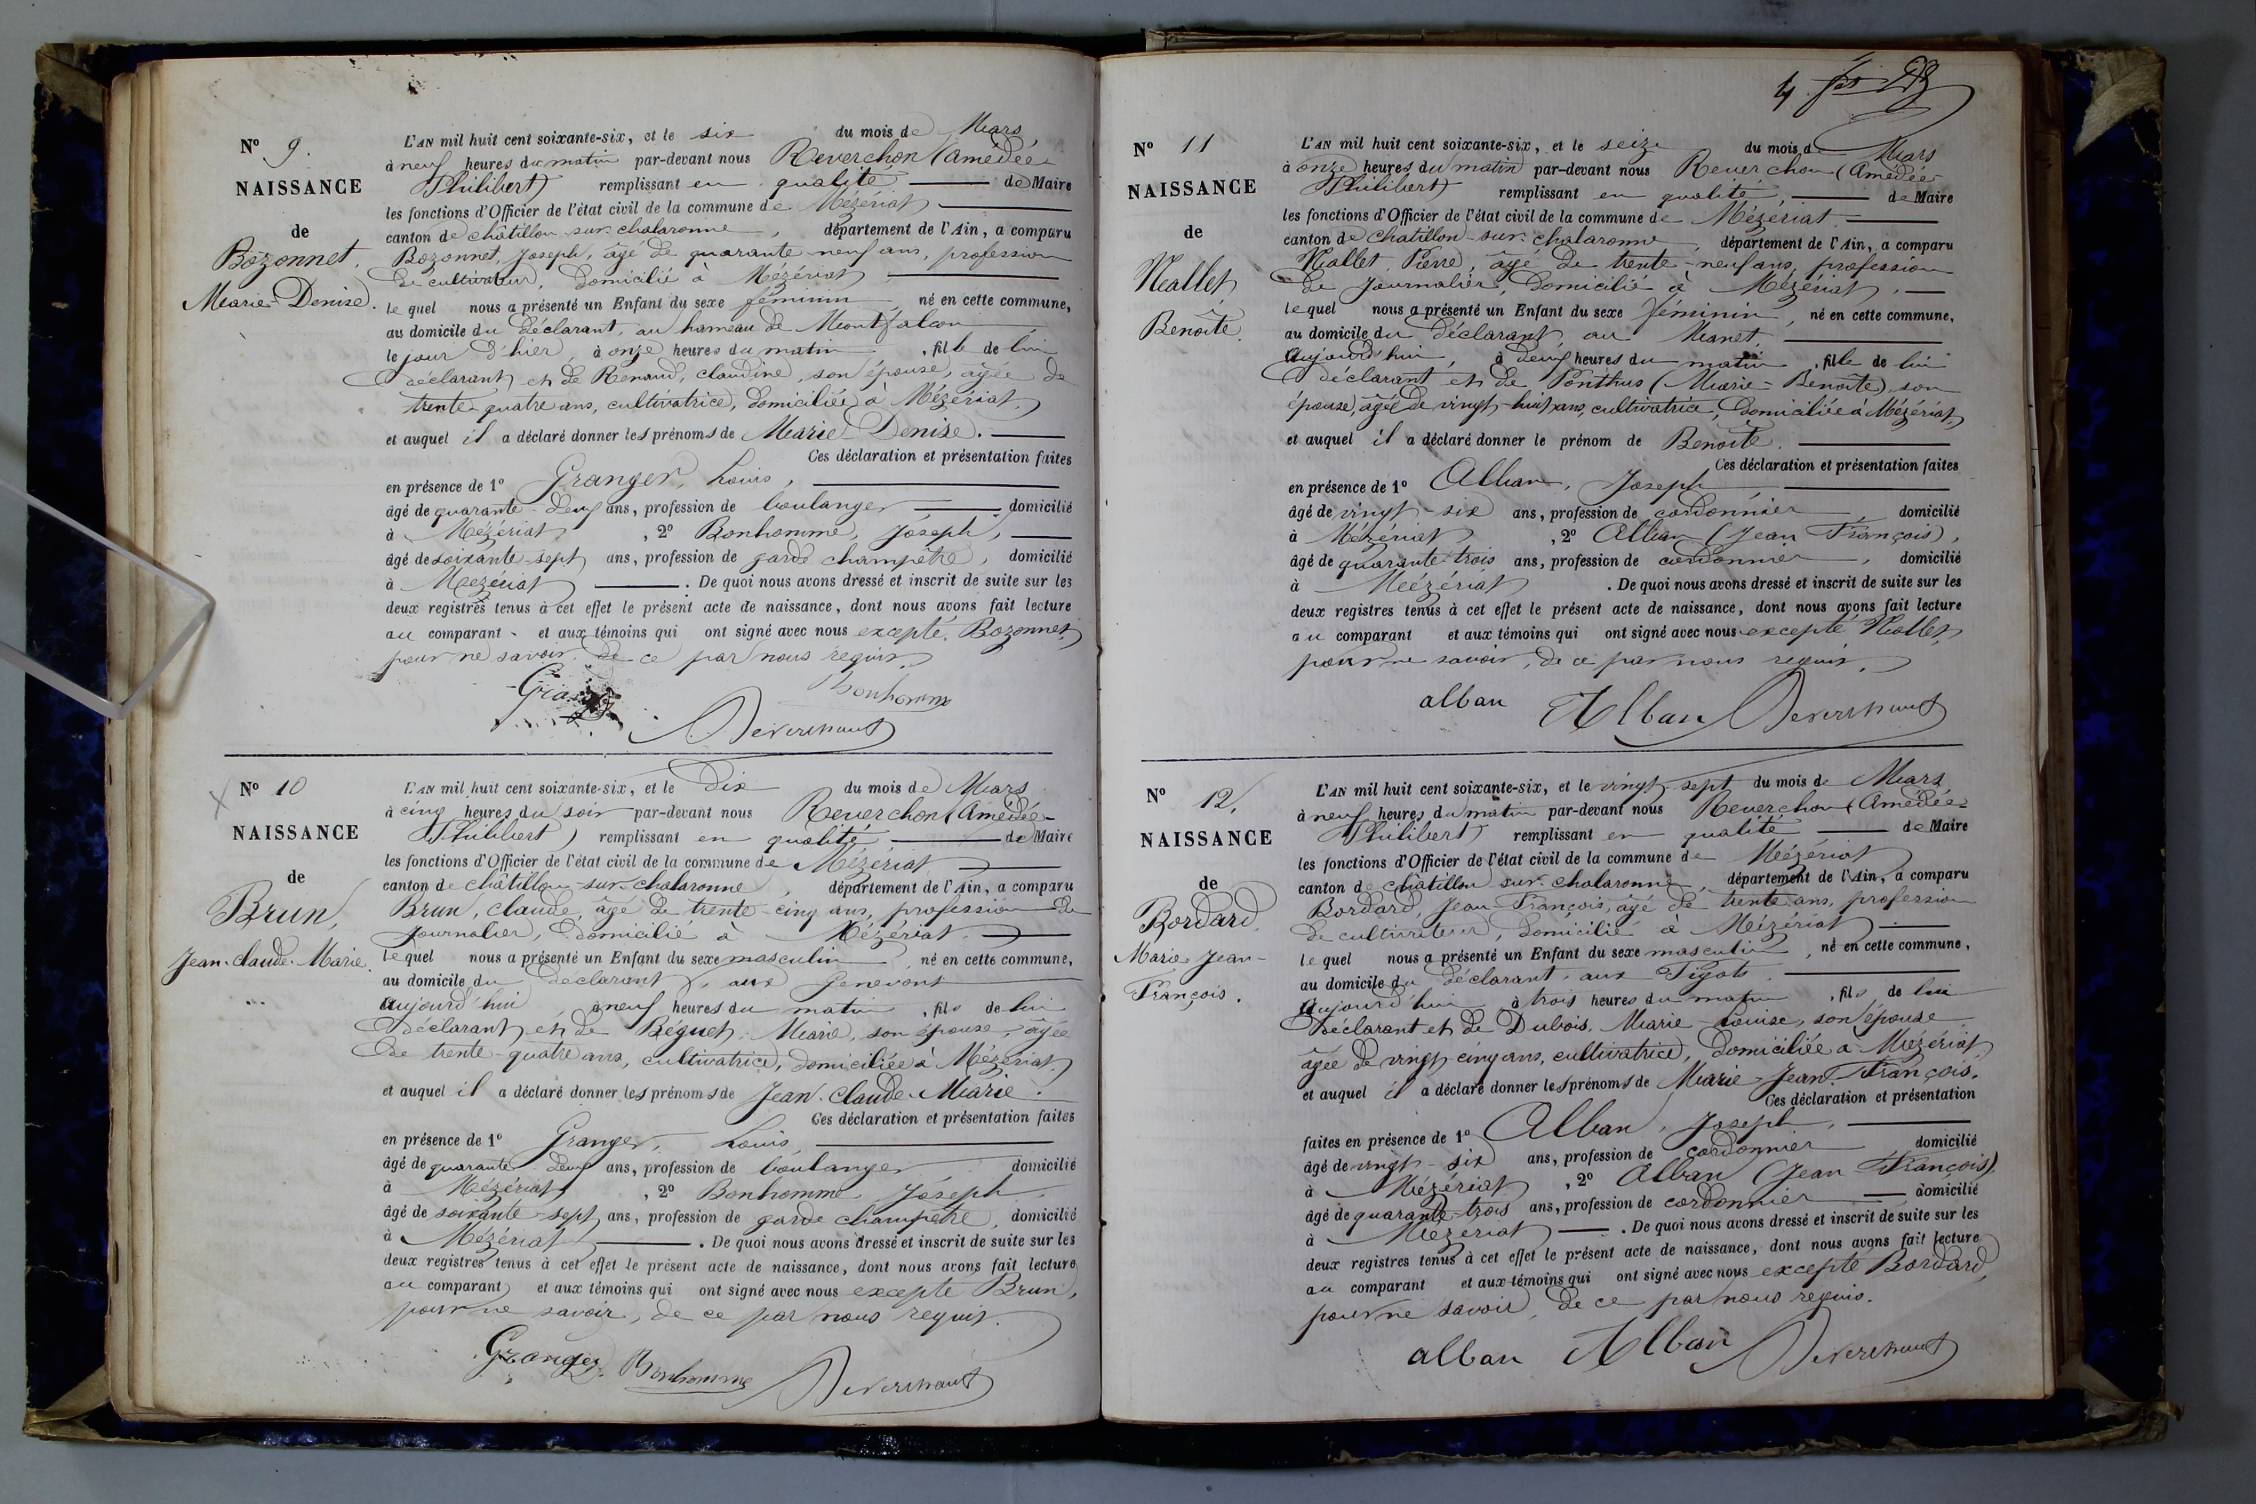 Nº 9.
NAISSANCE
de
Bozonnet,
Marie-Denise.
L'AN mil huit cent soixante-six, et le six du mois de Mars
à neuf heures du matin par-devant nous Reverchon (Amédée
Philibert) remplissant en qualité de Maire
les fonctions d'Officier de l'état civil de la commune de Mézériat
canton de châtillon-sur-chalaronne, département de l'Ain, a comparu
Bozonnet, Joseph, âgé de quarante-neuf ans, profession
de cultivateur, domicilié à Mézériat
le quel nous a présenté un Enfant du sexe féminin, né en cette commune,
au domicile du déclarant, au hameau de Montfalcon
le jour d'hier, à onze heures du matin, fille de lui
déclarant et de Renaud, claudine, son épouse, âgée de
trente-quatre ans, cultivatrice, domiciliée à Mézériat.
et auquel il a déclaré donner les prénoms de Marie-Denise.
Ces déclaration et présentation faites
en présence de 1º Granger, Louis,
âgé de quarante-deux ans, profession de boulanger domicilié
à Mézériat, 2º Bonhomme, Joseph,
âgé de soixante-sept ans, profession de garde champêtre, domicilié
à Mézériat. De quoi nous avons dressé et inscrit de suite sur les
deux registres tenus à cet effet le présent acte de naissance, dont nous avons fait lecture
au comparant et aux témoins qui ont signé avec nous excepté Bozonnet,
pour ne savoir, de ce par nous requis.
Bonhomme
Reverchon
Nº 10
NAISSANCE
de
Brun,
Jean-claude-Marie.
L'AN mil huit cent soixante-six, et le Dix du mois de Mars
à cinq heures du soir par-devant nous Reverchon (Amédée-
Philibert) remplissant en qualité de Maire
les fonctions d'Officier de l'état civil de la commune de Mézériat
canton de châtillon-sur-chalaronne, département de l'Ain, a comparu
Brun, claude, âgé de trente-cinq ans, profession de
journalier, domicilié à Mézériat.
le quel nous a présenté un Enfant du sexe masculin, né en cette commune,
au domicile du déclarant, aux Genevont
aujourd'hui à neuf heures du matin, fils de lui
déclarant et de Béguet, Marie, son épouse, âgée
de trente-quatre ans, cultivatrice, domiciliée à Mézériat.
et auquel il a déclaré donner les prénoms de Jean-claude-Marie.
Ces déclaration et présentation faites
en présence de 1º Granger, Louis
âgé de quarante-deux ans, profession de boulanger domicilié
à Mézériat, 2º Bonhomme Joseph
âgé de soixante-sept ans, profession de garde champêtre, domicilié
à Mézériat. De quoi nous avons dressé et inscrit de suite sur les
deux registres tenus à cet effet le présent acte de naissance, dont nous avons fait lecture
au comparant et aux témoins qui ont signé avec nous excepté Brun,
pour ne savoir, de ce par nous requis.
Granger Bonhomme Reverchon
4
Nº 11
NAISSANCE
de
Mallet,
Benoîte.
L'AN mil huit cent soixante-six, et le seize du mois de Mars
à onze heures du matin par-devant nous Reverchon (Amédée
Philibert) remplissant en qualité, de Maire
les fonctions d'Officier de l'état civil de la commune de Mézériat
canton de châtillon-sur-chalaronne, département de l'Ain, a comparu
Mallet, Pierre, âgé de trente-neuf ans, profession
de journalier, domicilié à Mézériat.
le quel nous a présenté un Enfant du sexe féminin, né en cette commune,
au domicile du déclarant, au Manet.
aujourd'hui, à deux heures du matin, fille de lui
déclarant et de Ponthus (Marie-Benoîte), son
épouse, âgée de vingt-huit ans, cultivatrice, domiciliée à Mézériat,
et auquel il a déclaré donner le prénom de Benoîte.
Ces déclaration et présentation faites
en présence de 1º Alban, Joseph
âgé de vingt-six ans, profession de cordonnier, domicilié
à Mézériat, 2º Alban (Jean François),
âgé de quarante-trois ans, profession de cordonnier, domicilié
à Mézériat. De quoi nous avons dressé et inscrit de suite sur les
deux registres tenus à cet effet le présent acte de naissance, dont nous avons fait lecture
au comparant et aux témoins qui ont signé avec nous excepté Mallet,
pour ne savoir, de ce par nous requis.
alban Alban Reverchon
Nº 12,
NAISSANCE
de
Bordard,
Marie-Jean-
François.
L'AN mil huit cent soixante-six, et le vingt-sept du mois de Mars
à neuf heures du matin par-devant nous Reverchon (Amédée-
Philibert) remplissant en qualité de Maire
les fonctions d'Officier de l'état civil de la commune de Mézériat
canton de châtillon-sur-chalaronne, département de l'Ain, a comparu
Bordard, Jean-François, âgé de trente ans, profession
de cultivateur, domicilié à Mézériat
le quel nous a présenté un Enfant du sexe masculin, né en cette commune,
au domicile du déclarant, aux Pigots.
aujourd'hui à trois heures du matin, fils de lui
déclarant et de Dubois, Marie-Louise, son épouse
âgée de vingt-cinq ans, cultivatrice, domiciliée à Mézériat
et auquel il a déclaré donner les prénoms de Marie-Jean-François.
Ces déclaration et présentation
faites en présence de 1º Alban, Joseph,
âgé de vingt-six ans, profession de cordonnier domicilié
à Mézériat, 2º Alban (Jean François)
âgé de quarante-trois ans, profession de cordonnier domicilié
à Mézériat. De quoi nous avons dressé et inscrit de suite sur les
deux registres tenus à cet effet le présent acte de naissance, dont nous avons fait lecture
au comparant et aux témoins qui ont signé avec nous excepté Bordard,
pour ne savoir, de ce par nous requis.
alban Alban Reverchon